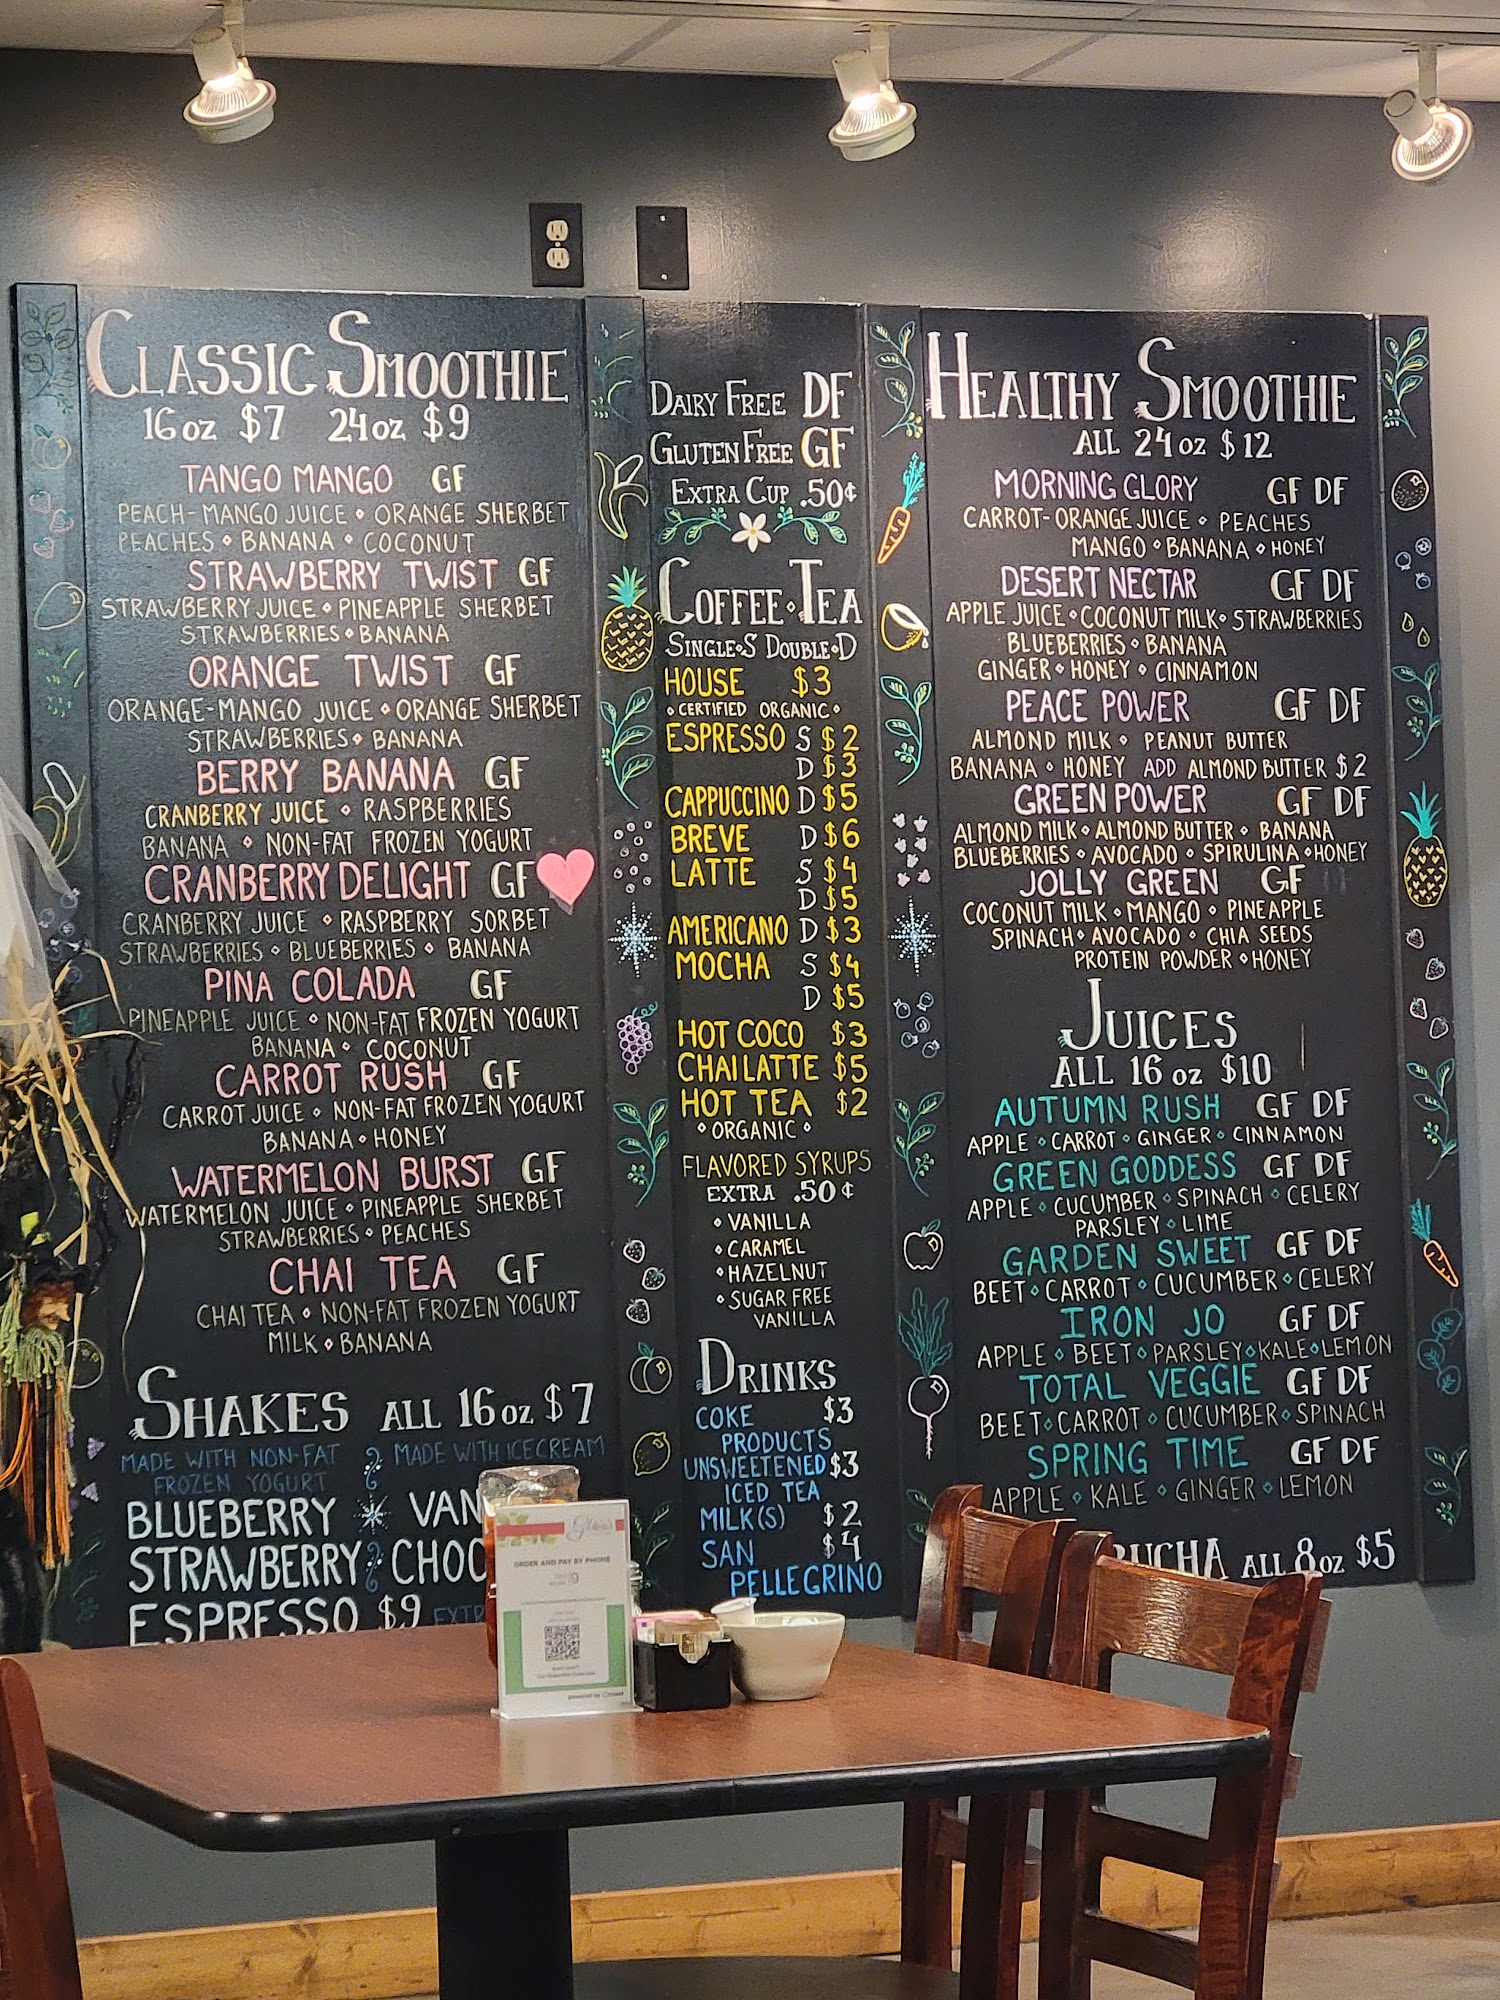 CLASSIC SMOOTHIE
16 oz $7 24 oz $9
TANGO MANGO GF
PEACH-MANGO JUICE • ORANGE SHERBET
PEACHES • BANANA • COCONUT
STRAWBERRY TWIST GF
STRAWBERRY JUICE • PINEAPPLE SHERBET
STRAWBERRIES • BANANA
ORANGE TWIST GF
ORANGE-MANGO JUICE • ORANGE SHERBET
STRAWBERRIES • BANANA
BERRY BANANA GF
CRANBERRY JUICE • RASPBERRIES
BANANA • NON-FAT FROZEN YOGURT
CRANBERRY DELIGHT GF
CRANBERRY JUICE • RASPBERRY SORBET
STRAWBERRIES • BLUEBERRIES • BANANA
PINA COLADA GF
PINEAPPLE JUICE • NON-FAT FROZEN YOGURT
BANANA • COCONUT
CARROT RUSH GF
CARROT JUICE • NON-FAT FROZEN YOGURT
BANANA • HONEY
WATERMELON BURST GF
WATERMELON JUICE • PINEAPPLE SHERBET
STRAWBERRIES • PEACHES
CHAI TEA GF
CHAI TEA • NON-FAT FROZEN YOGURT
MILK • BANANA
SHAKES ALL 16 oz $7
MADE WITH NON-FAT
FROZEN YOGURT
MADE WITH ICE CREAM
BLUEBERRY VAN
STRAWBERRY CHOC
ESPRESSO $9
DAIRY FREE DF
GLUTEN FREE GF
EXTRA CUP .50¢
COFFEE • TEA
SINGLE•S DOUBLE•D
HOUSE $3
• CERTIFIED ORGANIC •
ESPRESSO S $2
D $3
CAPPUCCINO D $5
BREVE D $6
LATTE S $4
D $5
AMERICANO D $3
MOCHA S $4
D $5
HOT COCO $3
CHAI LATTE $5
HOT TEA $2
• ORGANIC •
FLAVORED SYRUPS
EXTRA .50¢
• VANILLA
• CARAMEL
• HAZELNUT
• SUGAR FREE
VANILLA
DRINKS
COKE $3
PRODUCTS
UNSWEETENED $3
ICED TEA
MILK(S) $2
SAN $4
PELLEGRINO
HEALTHY SMOOTHIE
ALL 24 oz $12
MORNING GLORY GF DF
CARROT-ORANGE JUICE • PEACHES
MANGO • BANANA • HONEY
DESERT NECTAR GF DF
APPLE JUICE • COCONUT MILK • STRAWBERRIES
BLUEBERRIES • BANANA
GINGER • HONEY • CINNAMON
PEACE POWER GF DF
ALMOND MILK • PEANUT BUTTER
BANANA • HONEY ADD ALMOND BUTTER $2
GREEN POWER GF DF
ALMOND MILK • ALMOND BUTTER • BANANA
BLUEBERRIES • AVOCADO • SPIRULINA • HONEY
JOLLY GREEN GF
COCONUT MILK • MANGO • PINEAPPLE
SPINACH • AVOCADO • CHIA SEEDS
PROTEIN POWDER • HONEY
JUICES
ALL 16 oz $10
AUTUMN RUSH GF DF
APPLE • CARROT • GINGER • CINNAMON
GREEN GODDESS GF DF
APPLE • CUCUMBER • SPINACH • CELERY
PARSLEY • LIME
GARDEN SWEET GF DF
BEET • CARROT • CUCUMBER • CELERY
IRON JO GF DF
APPLE • BEET • PARSLEY • KALE • LEMON
TOTAL VEGGIE GF DF
BEET • CARROT • CUCUMBER • SPINACH
SPRING TIME GF DF
APPLE • KALE • GINGER • LEMON
BUCHA ALL 8 oz $5
ORDER AND PAY BY PHONE
9
powered by